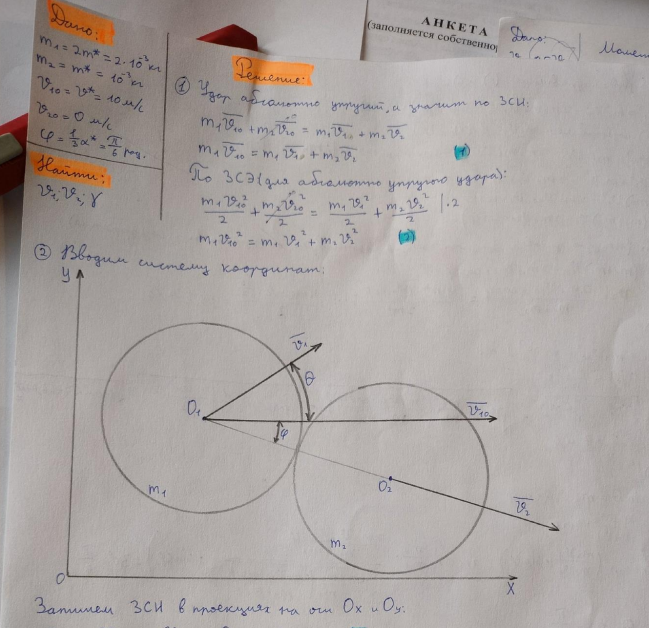 Дано:
m₁ = 2m* = 2·10⁻³ кг
m₂ = m* = 10⁻³ кг
v₁₀ = v* = 10 м/с
v₂₀ = 0 м/с
φ = 1/3 α* = π/6 рад.
Найти:
v₁; v₂; γ
АНКЕТА
(заполняется собственно
Дано:
Решение:
① Удар абсолютно упругий, а значит по ЗСИ:
m₁v̅₁₀ + m₂v̅₂₀ = m₁v̅₁₀ + m₂v̅₂
m₁v̅₁₀ = m₁v̅₁ + m₂v̅₂ (1)
По ЗСЭ (для абсолютно упругого удара):
m₁v₁₀²/2 + m₂v₂₀²/2 = m₁v₁²/2 + m₂v₂²/2 |·2
m₁v₁₀² = m₁v₁² + m₂v₂² (2)
② Вводим систему координат:
Y
v̅₁
θ
O₁
v̅₁₀
φ
m₁
O₂
v̅₂
m₂
O
X
Запишем ЗСИ в проекциях на оси Ox и Oy: